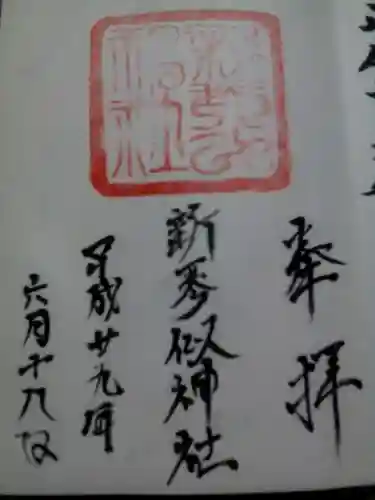 奉拝
新琴似神社
平成廿九年
六月十八日